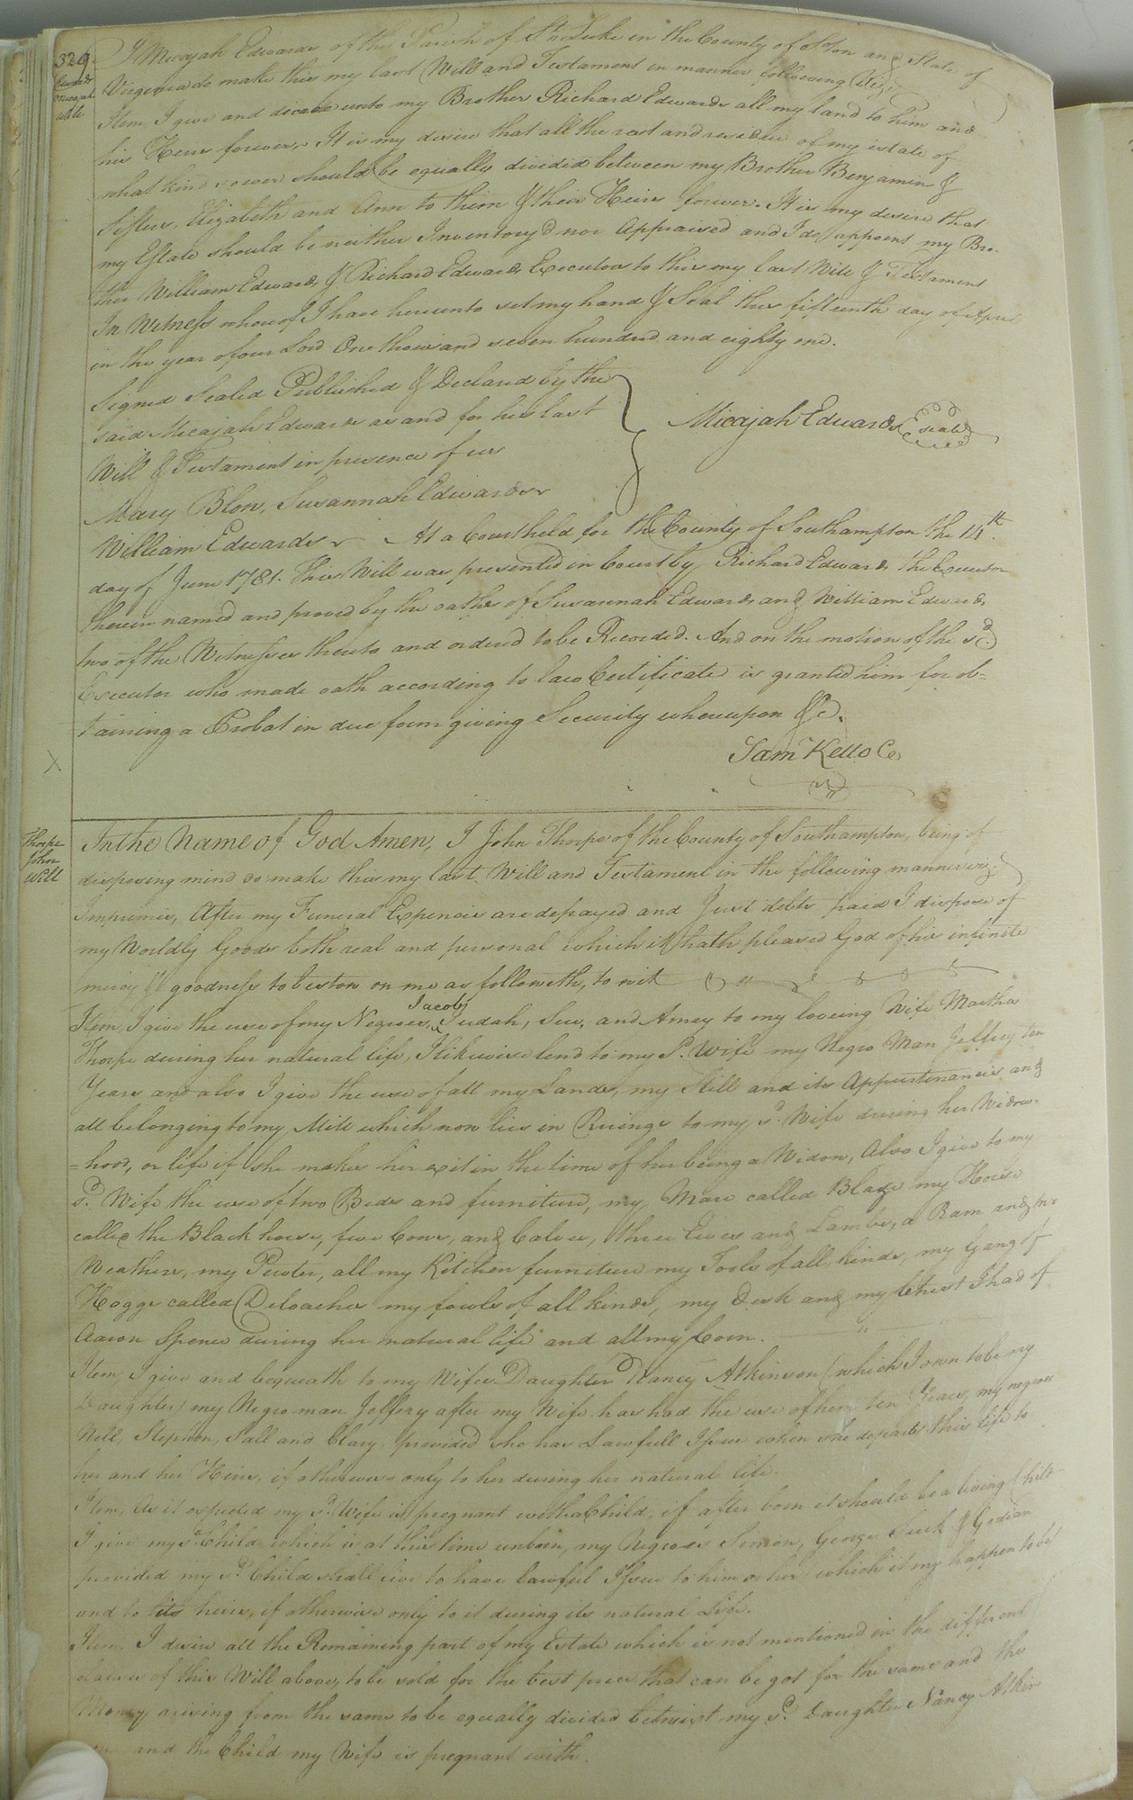 329.
Edwards
Micajah
Will
I Micajah Edwards of the Parish of St. Luke in the County of Soton and State of
Virginia do make this my last Will and Testament in manner following (Viz)
Item, I give and devise unto my Brother Richard Edwards all my land to him and
his Heirs forever. It is my desire that all the rest and residue of my estate of
what kind soever should be equally divided between my Brother Benjamin &
Sisters, Elizabeth and Ann to them & their Heirs forever. It is my desire that
my Estate should be neither Inventory'd nor Appraised and I do appoint my Bro-
ther William Edwards & Richard Edwards Executors to this my last Will & Testament
In Witness whereof I have hereunto set my hand & Seal this fifteenth day of April
in the year of our Lord One thousand seven hundred and eighty one.
Signed Sealed Published & Declared by the
said Micajah Edwards as and for his last
Will & Testament in presence of us
Micajah Edwards seal
Mary Blow, Susannah Edwards
William Edwards At a Court held for the County of Southampton the 14th
day of June 1781. This Will was presented in Court by Richard Edwards the Executor
therein named and proved by the oaths of Susannah Edwards and William Edwards
two of the Witnesses thereto and ordered to be Recorded. And on the motion of the sd.
Executor who made oath according to law Certificate is granted him for ob=
taining a Probat in due form giving Security whereupon &c.
Sam Kello Cc
X
Thorpe
John
Will
In the Name of God Amen, I John Thorpe of the County of Southampton, being of
disposing mind do make this my last Will and Testament in the following manner viz.
Imprimis, After my Funeral Expences are defrayed and Just debts paid I dispose of
my Worldly Goods both real and personal which it hath pleased God of his infinite
mercy & goodness to bestow on me as followeth, to wit
Jacob,
Item, I give the use of my Negroes, Judah, Sue, and Amey to my loveing Wife Martha
Thorpe during her natural life, I likewise lend to my Sd. Wife my Negro Man Jeffrey ten
Years and also I give the use of all my Lands, my Still and its Appurtenances and
all belonging to my Mill which now lies in Ruings to my sd. Wife during her Widow-
=hood, or life if she makes her exit in the time of her being a Widow, Also I give to my
sd. Wife the use of two Beds and furniture, my Mare called Blaze my Horse
called the Black horse, five Cows, and Calves, three Ewes and Lambs, a Ram and two
Weathers, my Pewter, all my Kitchen furniture my Tools of all kinds, my Gang of
Hoggs called Deloaches my fowls of all kinds, my Desk and my Chest I had of
Aaron Spence during her natural life and all my Corn.
Item, I give and bequeath to my Wifes Daughter Nancy Atkinson (which I own to be my
Daughter) my Negro man Jeffery after my Wife has had the use of him ten Years, my negroes
Nell, Stephen, Sall and Clary provided she has Lawfull Issue when she departs this life to
her and her Heirs, if otherwise only to her during her natural life.
Item, As it expected my sd. Wife is pregnant with a Child, if after born it should be a living Child
I give my sd. Child which is at this time unborn, my Negroes Simon, George, &
provided my sd. Child shall live to have lawful Issue to him or her which it may happen to be
and to its heirs, if otherwise only to it during its natural Life.
Item, I desire all the Remaining part of my Estate which is not mentioned in the different
clauses of this Will above, to be sold for the best price that can be got for the same and the
Money arising from the same to be equally divided betwixt my sd. Daughter Nancy Atkin
and the Child my Wife is pregnant with.